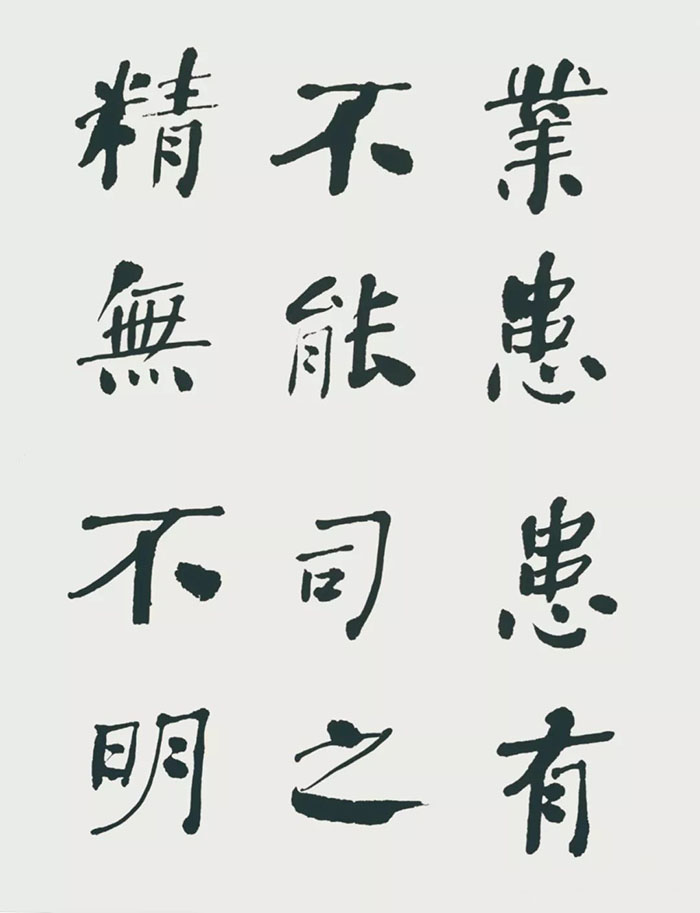 業患患有
不能司之
精無不明